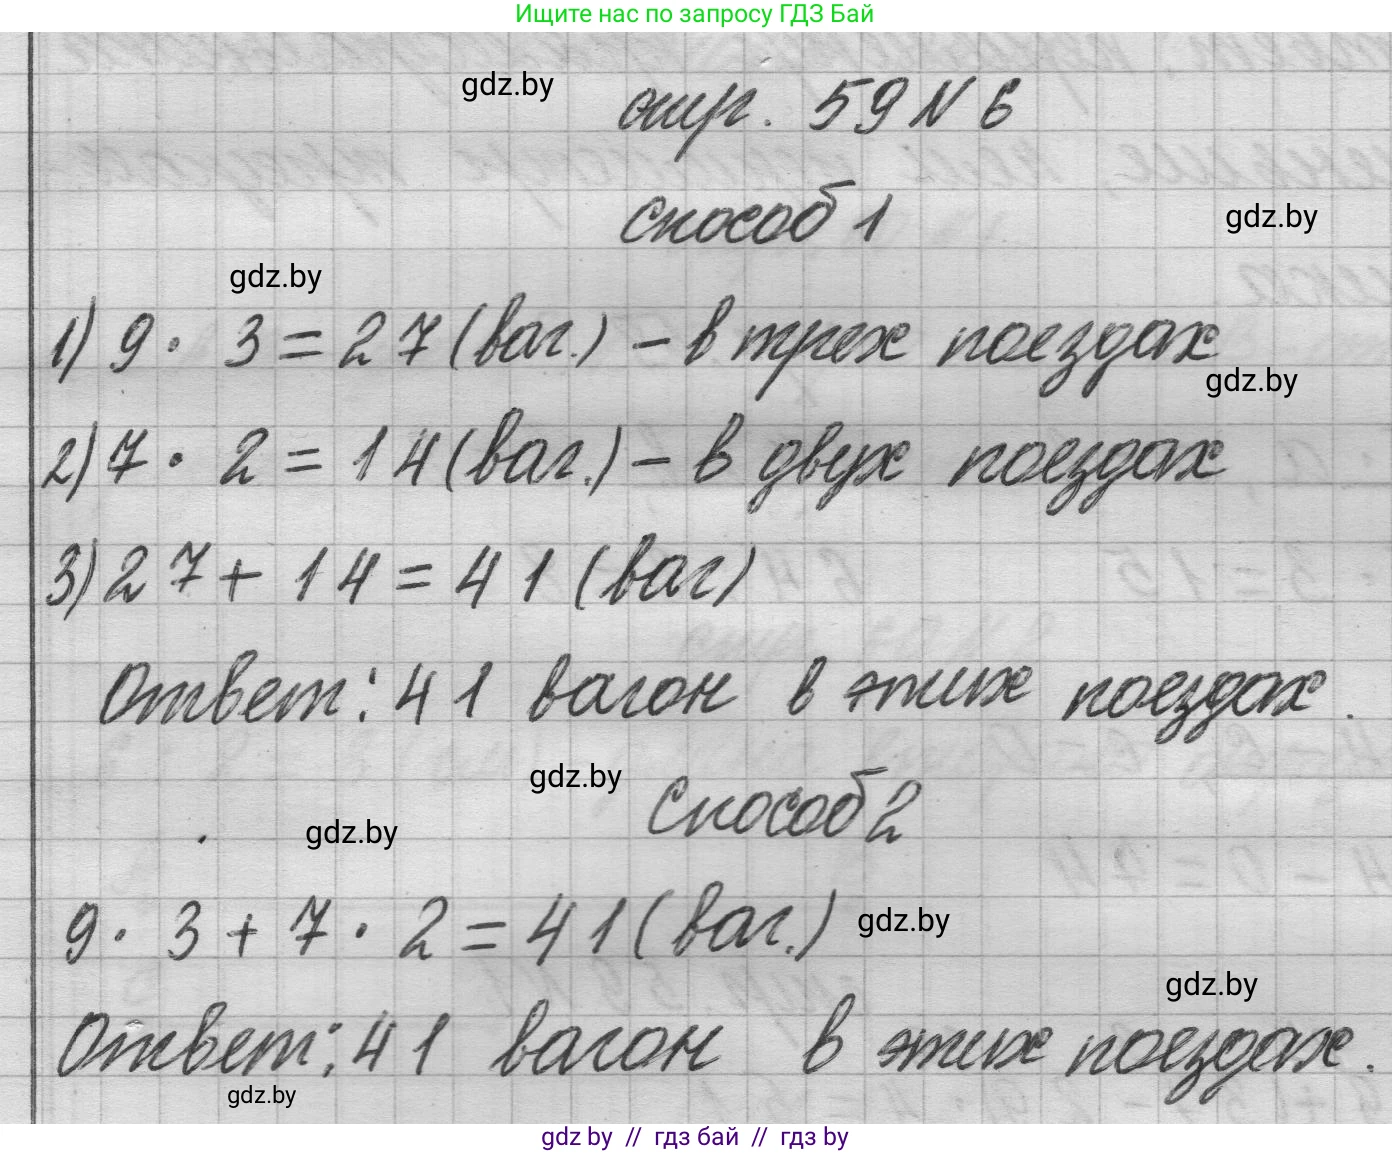 Ищите нас по запросу ГДЗ Бай
gdz.by
стр. 59 N 6
gdz.by
способ 1
gdz.by
1) 9 · 3 = 27 (ваг.) – в трех поездах
gdz.by
2) 7 · 2 = 14 (ваг.) – в двух поездах
3) 27 + 14 = 41 (ваг)
Ответ: 41 вагон в этих поездах.
gdz.by
способ 2
gdz.by
9 · 3 + 7 · 2 = 41 (ваг.)
gdz.by
gdz.by
Ответ: 41 вагон в этих поездах.
gdz.by
gdz by // гдз бай // гдз by